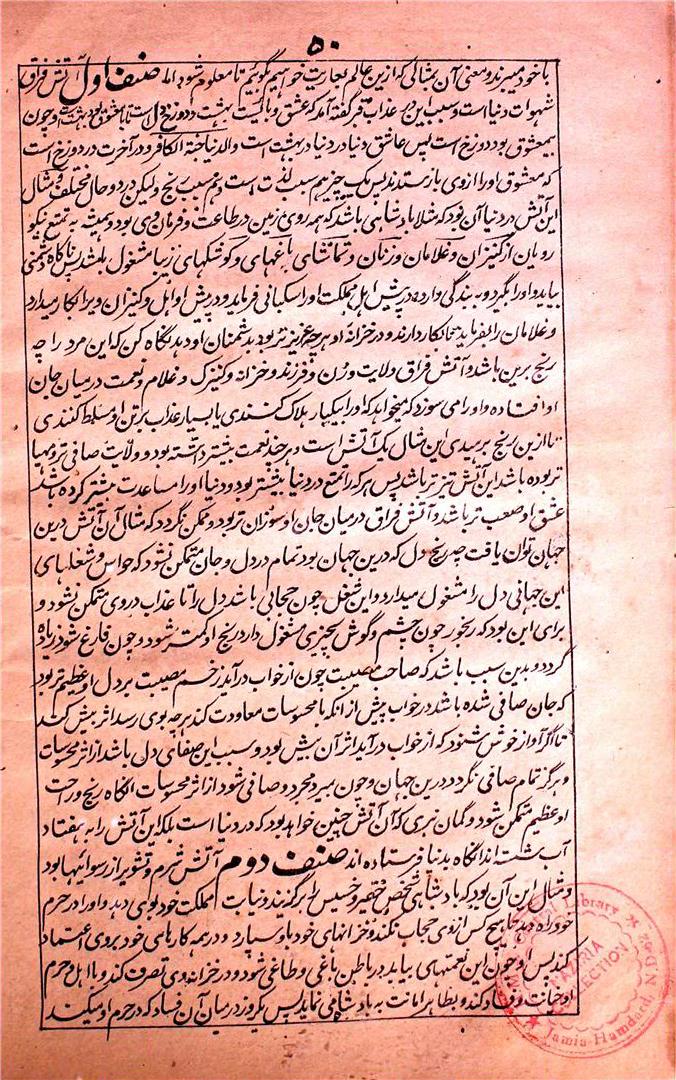 ۵۰
باخود میبرند و معنی آن بمثالی که ازین عالم بعاریت خواهیم گوئیم تا معلوم شود اما صنف اول آتش فراق
شهوات دنیا است و سبب این در عذاب قبر گفته آمد که عشق و بایست بهشت و دوزخ دل است تا با معشوق بود بهشت است و چون
بیمعشوق بود دوزخ است پس عاشق دنیا در دنیا در بهشت است و الدنیا جنة الکافر و در آخرت در دوزخ است
که معشوق او را ازوی بازستدند پس یک چیز هم سبب لذت است و هم سبب رنج ولیکن در دو حال مختلف و مثال
این آتش در دنیا آن بود که مثلا بادشاهی باشد که همه روی زمین در طاعت و فرمان وی بود و همیشه به تمتع نیکو
رویان از کنیزان و غلامان و زنان و تماشای باغهای و کوشکهای زیبا مشغول باشد پس ناگاه دشمنی
بیاید و او را بگیرد و به بندگی دارد و در پیش اهل مملکت او را سگبانی فرماید و در پیش او اهل و کنیزان ویرا بکار میدارد
و غلامان را بفرماید تا بکار دارند و در خزانه او هرچه عزیزتر بود بدشمنان او دهد نگاه کن که این مرد را چه
رنج برین باشد و آتش فراق ولایت و زن و فرزند و خزانه و کنیزک و غلام و نعمت در میان جان
او افتاده و او را می سوزد که میخواهد که او را بیکبار هلاک کنندی یا بسیار عذاب بر تن او مسلط کنندی
تا ازین رنج برهیدی این مثال یک آتش است و هر چند نعمت بیشتر داشته بود و ولایت صافی تر و مهیا
تر بوده باشد این آتش تیزتر باشد پس هرکه را تمتع در دنیا بیشتر بود و دنیا او را مساعدت بیشتر کرده باشد
عشق او صعب تر باشد و آتش فراق در میان جان او سوزان تر بود و ممکن نگردد که مثال آن آتش درین
جهان توان یافت چه رنج دل که درین جهان بود تمام در دل و جان متمکن نشود که حواس و شغلهای
این جهانی دل را مشغول میدارد و این شغل چون حجابی باشد دل را تا عذاب در وی متمکن نشود و
برای این بود که رنجور چون چشم و گوش بچیزی مشغول دارد رنج او کمتر شود و چون فارغ شود زیاده
گردد و بدین سبب باشد که صاحب مصیبت چون از خواب درآید زخم مصیبت بر دل او عظیم تر بود
که جان صافی شده باشد در خواب پیش از آنکه با محسوسات معاودت کند هرچه بوی رسد اثر بیش کند
تا اگر آواز خوش شنود که از خواب درآید اثر آن بیش بود و سبب این صفای دل باشد از اثر محسوسات
و هرگز تمام صافی نگردد درین جهان و چون بمیرد مجرد و صافی شود از اثر محسوسات آنگاه رنج و راحت
او عظیم متمکن شود و گمان نبری که آن آتش چنین خواهد بود که در دنیا است بلکه این آتش را به هفتاد
آب شسته اند آنگاه بدنیا فرستاده اند صنف دوم آتش شرم و تشویر از رسوائیها بود
و مثال این آن بود که بادشاهی شخصی حقیر و خسیس را برگزیند و نیابت مملکت خود بوی دهد و او را در حرم
خود راه دهد تا هیچ کس ازوی حجاب نکند و خزانهای خود باو سپارد و در همه کارهای خود بر وی اعتماد
کند پس او چون این نعمتهای بیابد در باطن باغی و طاغی شود و در خزانه وی تصرف کند و با اهل و حرم
او خیانت و فساد کند و بظاهر امانت به بادشاه می نماید پس یکروز در میان آن فساد که در حرم او میکند
Library
COLLECTION
Jamia Hamdard, N.D-62